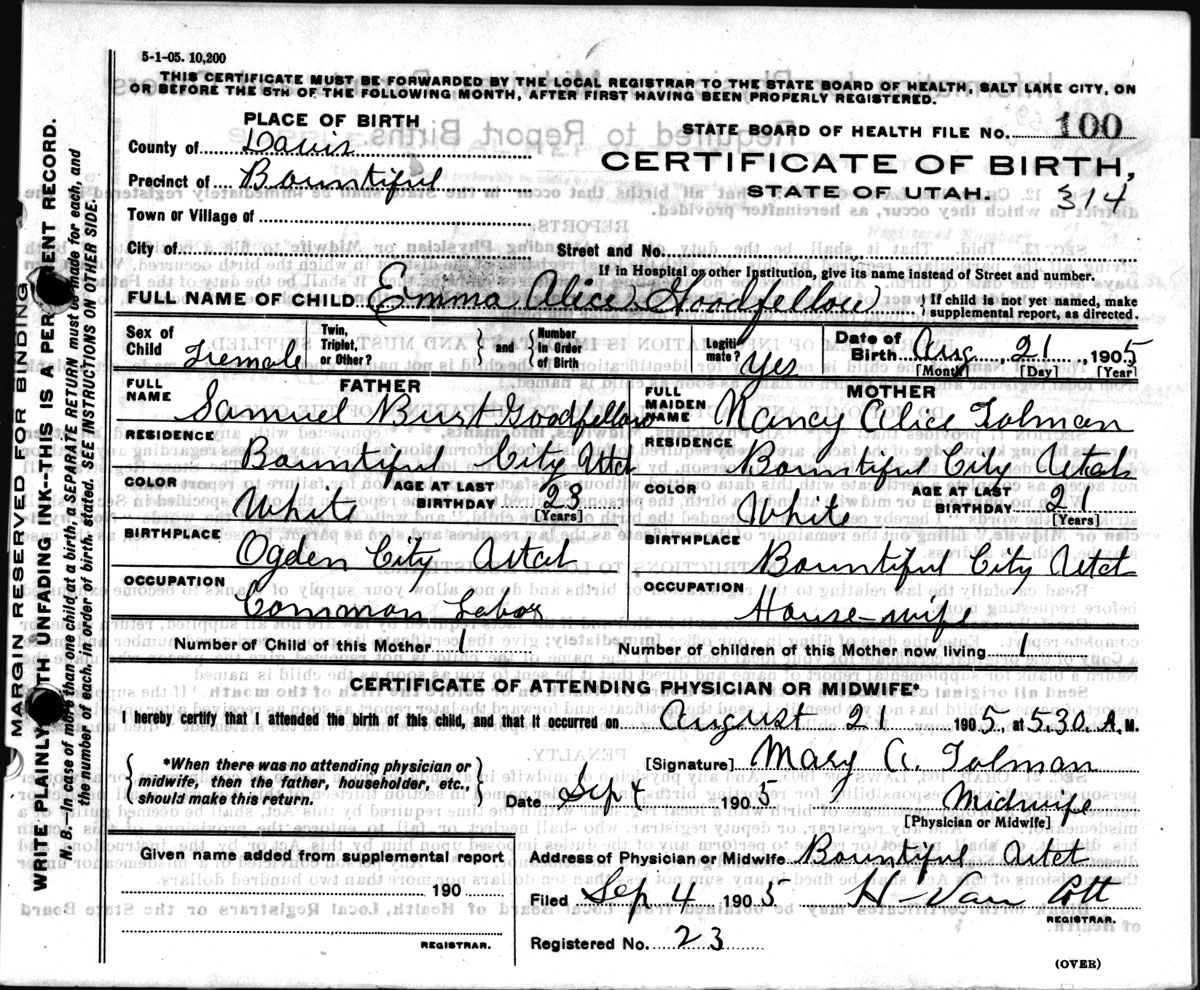 5-1-05. 10,200
THIS CERTIFICATE MUST BE FORWARDED BY THE LOCAL REGISTRAR TO THE STATE BOARD OF HEALTH, SALT LAKE CITY, ON
OR BEFORE THE 5TH OF THE FOLLOWING MONTH, AFTER FIRST HAVING BEEN PROPERLY REGISTERED.
PLACE OF BIRTH
County of Davis
Precinct of Bountiful
Town or Village of
City of
STATE BOARD OF HEALTH FILE NO. 100
CERTIFICATE OF BIRTH,
STATE OF UTAH. 314
Street and No.
If in Hospital or other Institution, give its name instead of Street and number.
FULL NAME OF CHILD Emma Alice Goodfellow
If child is not yet named, make
supplemental report, as directed.
Sex of Child Female
Twin, Triplet, or Other?
and
Number in Order of Birth
Legitimate? Yes
Date of Birth Aug 21, 1905
[Month] [Day] [Year]
FATHER
FULL NAME Samuel Burt Goodfellow
RESIDENCE
Bountiful City Utah
COLOR White
AGE AT LAST BIRTHDAY 23
[Years]
BIRTHPLACE
Ogden City Utah
OCCUPATION
Common Labor
MOTHER
FULL MAIDEN NAME Nancy Alice Tolman
RESIDENCE
Bountiful City Utah
COLOR White
AGE AT LAST BIRTHDAY 21
[Years]
BIRTHPLACE
Bountiful City Utah
OCCUPATION
House-wife
Number of Child of this Mother 1
Number of children of this Mother now living 1
CERTIFICATE OF ATTENDING PHYSICIAN OR MIDWIFE*
I hereby certify that I attended the birth of this child, and that it occurred on August 21 1905, at 5.30 A. M.
*When there was no attending physician or
midwife, then the father, householder, etc.,
should make this return.
[Signature] Mary A. Tolman
Date Sep 4 1905 Midwife
[Physician or Midwife]
Given name added from supplemental report
190
REGISTRAR.
Address of Physician or Midwife Bountiful Utah
Filed Sep 4 1905 H Van Cott
REGISTRAR.
Registered No. 23
(OVER)
MARGIN RESERVED FOR BINDING
WRITE PLAINLY WITH UNFADING INK---THIS IS A PERMANENT RECORD.
N. B.—In case of more than one child at a birth, a SEPARATE RETURN must be made for each, and
the number of each, in order of birth. stated. SEE INSTRUCTIONS ON OTHER SIDE.